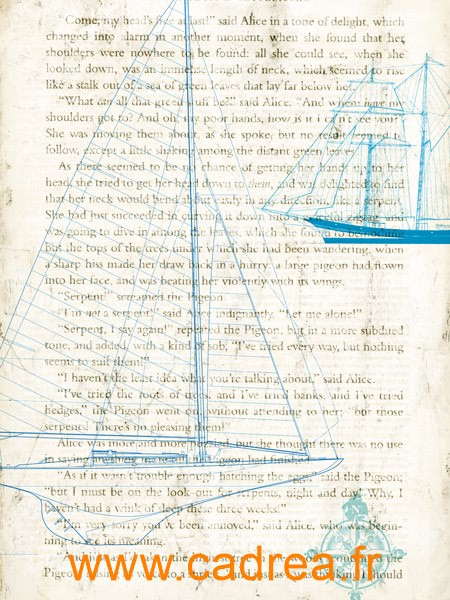 "Come, my head's free at last!" said Alice in a tone of delight, which
changed into alarm in another moment, when she found that her
shoulders were nowhere to be found: all she could see, when she
looked down, was an immense length of neck, which seemed to rise
like a stalk out of a sea of green leaves that lay far below her.
"What can all that green stuff be?" said Alice. "And where have my
shoulders got to? And oh, my poor hands, how is it I can't see you?"
She was moving them about, as she spoke, but no result seemed to
follow, except a little shaking among the distant green leaves.
As there seemed to be no chance of getting her hands up to her
head, she tried to get her head down to them, and was delighted to find
that her neck would bend about easily in any direction, like a serpent.
She had just succeeded in curving it down into a graceful zigzag, and
was going to dive in among the leaves, which she found to be nothing
but the tops of the trees under which she had been wandering, when
a sharp hiss made her draw back in a hurry: a large pigeon had flown
into her face, and was beating her violently with its wings.
"Serpent!" screamed the Pigeon.
"I'm not a serpent!" said Alice indignantly. "Let me alone!"
"Serpent, I say again!" repeated the Pigeon, but in a more subdued
tone, and added, with a kind of sob, "I've tried every way, but nothing
seems to suit them!"
"I haven't the least idea what you're talking about," said Alice.
"I've tried the roots of trees, and I've tried banks, and i've tried
hedges," the Pigeon went on, without attending to her; "but those
serpents! There's no pleasing them!"
Alice was more and more puzzled, but she thought there was no use
in saying anything more till the Pigeon had finished.
"As if it wasn't trouble enough hatching the eggs," said the Pigeon;
"but I must be on the look-out for serpents, night and day! Why, I
haven't had a wink of sleep these three weeks!"
"I'm very sorry you've been annoyed," said Alice, who was begin-
ning to see its meaning.
www.cadrea.fr